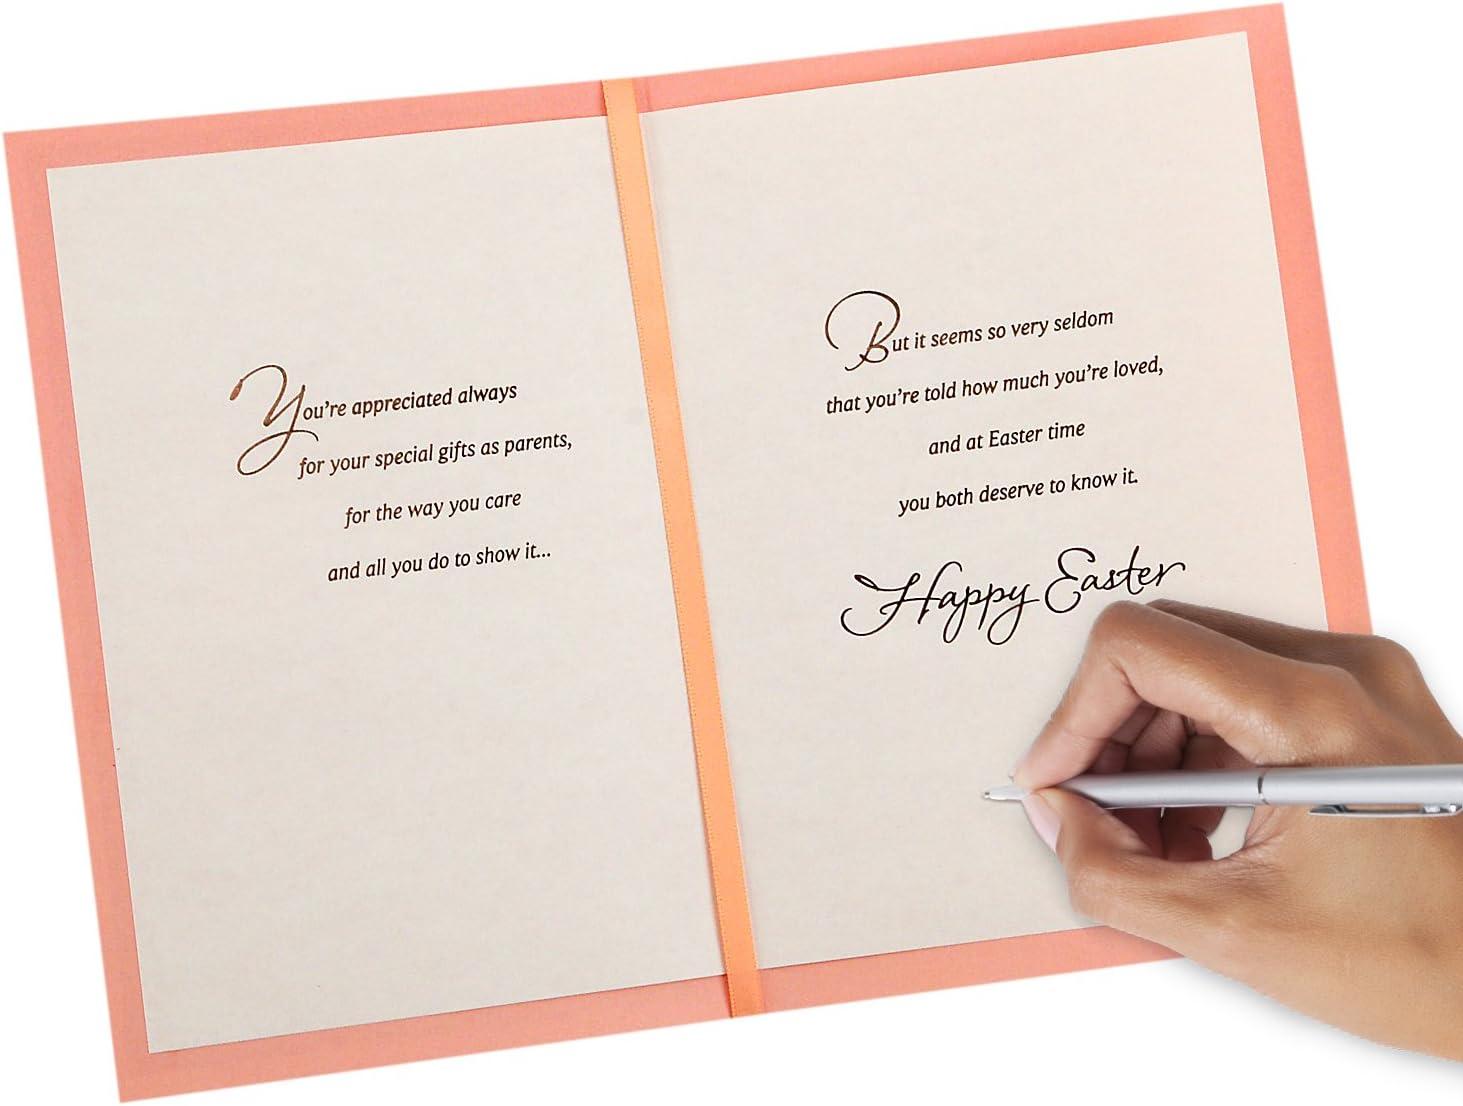 You're appreciated always
for your special gifts as parents,
for the way you care
and all you do to show it...
But it seems so very seldom
that you're told how much you're loved,
and at Easter time
you both deserve to know it.
Happy Easter